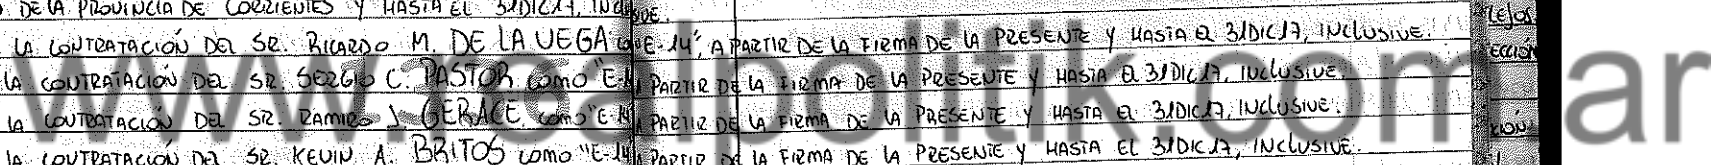 DE LA PROVINCIA DE CORRIENTES Y HASTA EL 31DIC17, INCLUSIVE.
LA CONTRATACIÓN DEL SR. RICARDO M. DE LA VEGA como "E-14", A PARTIR DE LA FIRMA DE LA PRESENTE Y HASTA EL 31DIC17, INCLUSIVE.
LA CONTRATACIÓN DEL SR. SERGIO C. PASTOR como "E-14 A PARTIR DE LA FIRMA DE LA PRESENTE Y HASTA EL 31DIC17, INCLUSIVE.
LA CONTRATACIÓN DEL SR. RAMIRO J. GERACE como "E-14 A PARTIR DE LA FIRMA DE LA PRESENTE Y HASTA EL 31DIC17, INCLUSIVE.
LA CONTRATACIÓN DEL SR. KEVIN A. BRITOS como "E-14 A PARTIR DE LA FIRMA DE LA PRESENTE Y HASTA EL 31DIC17, INCLUSIVE.
www.realpolitik.com.ar